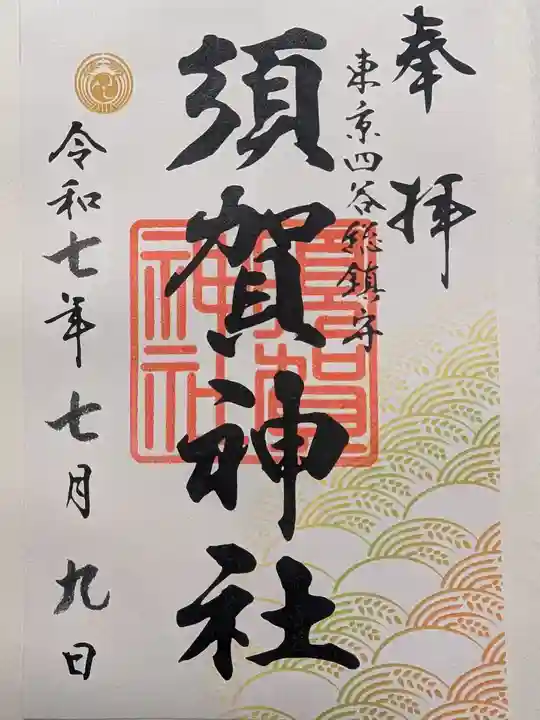 奉拝
東京四谷総鎮守
須賀神社
須賀神社
令和七年七月九日